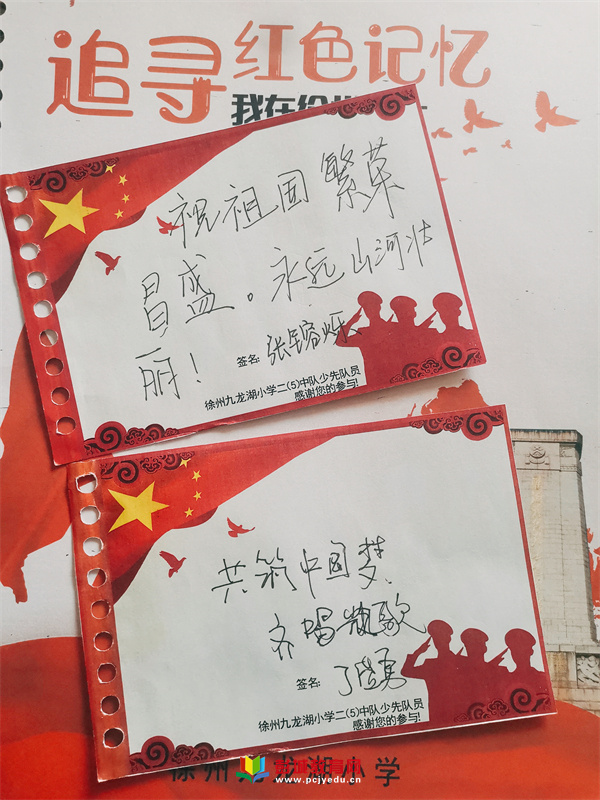 追寻红色记忆
我在
祝祖国繁荣
昌盛。永远山河壮
丽!
签名: 张
徐州九龙湖小学二(5)中队少先队员
感谢您的参与!
共筑中国梦
齐唱凯歌
签名: 勇
徐州九龙湖小学二(5)中队少先队员
感谢您的参与!
徐州九龙湖小学
www.pcjyedu.cn